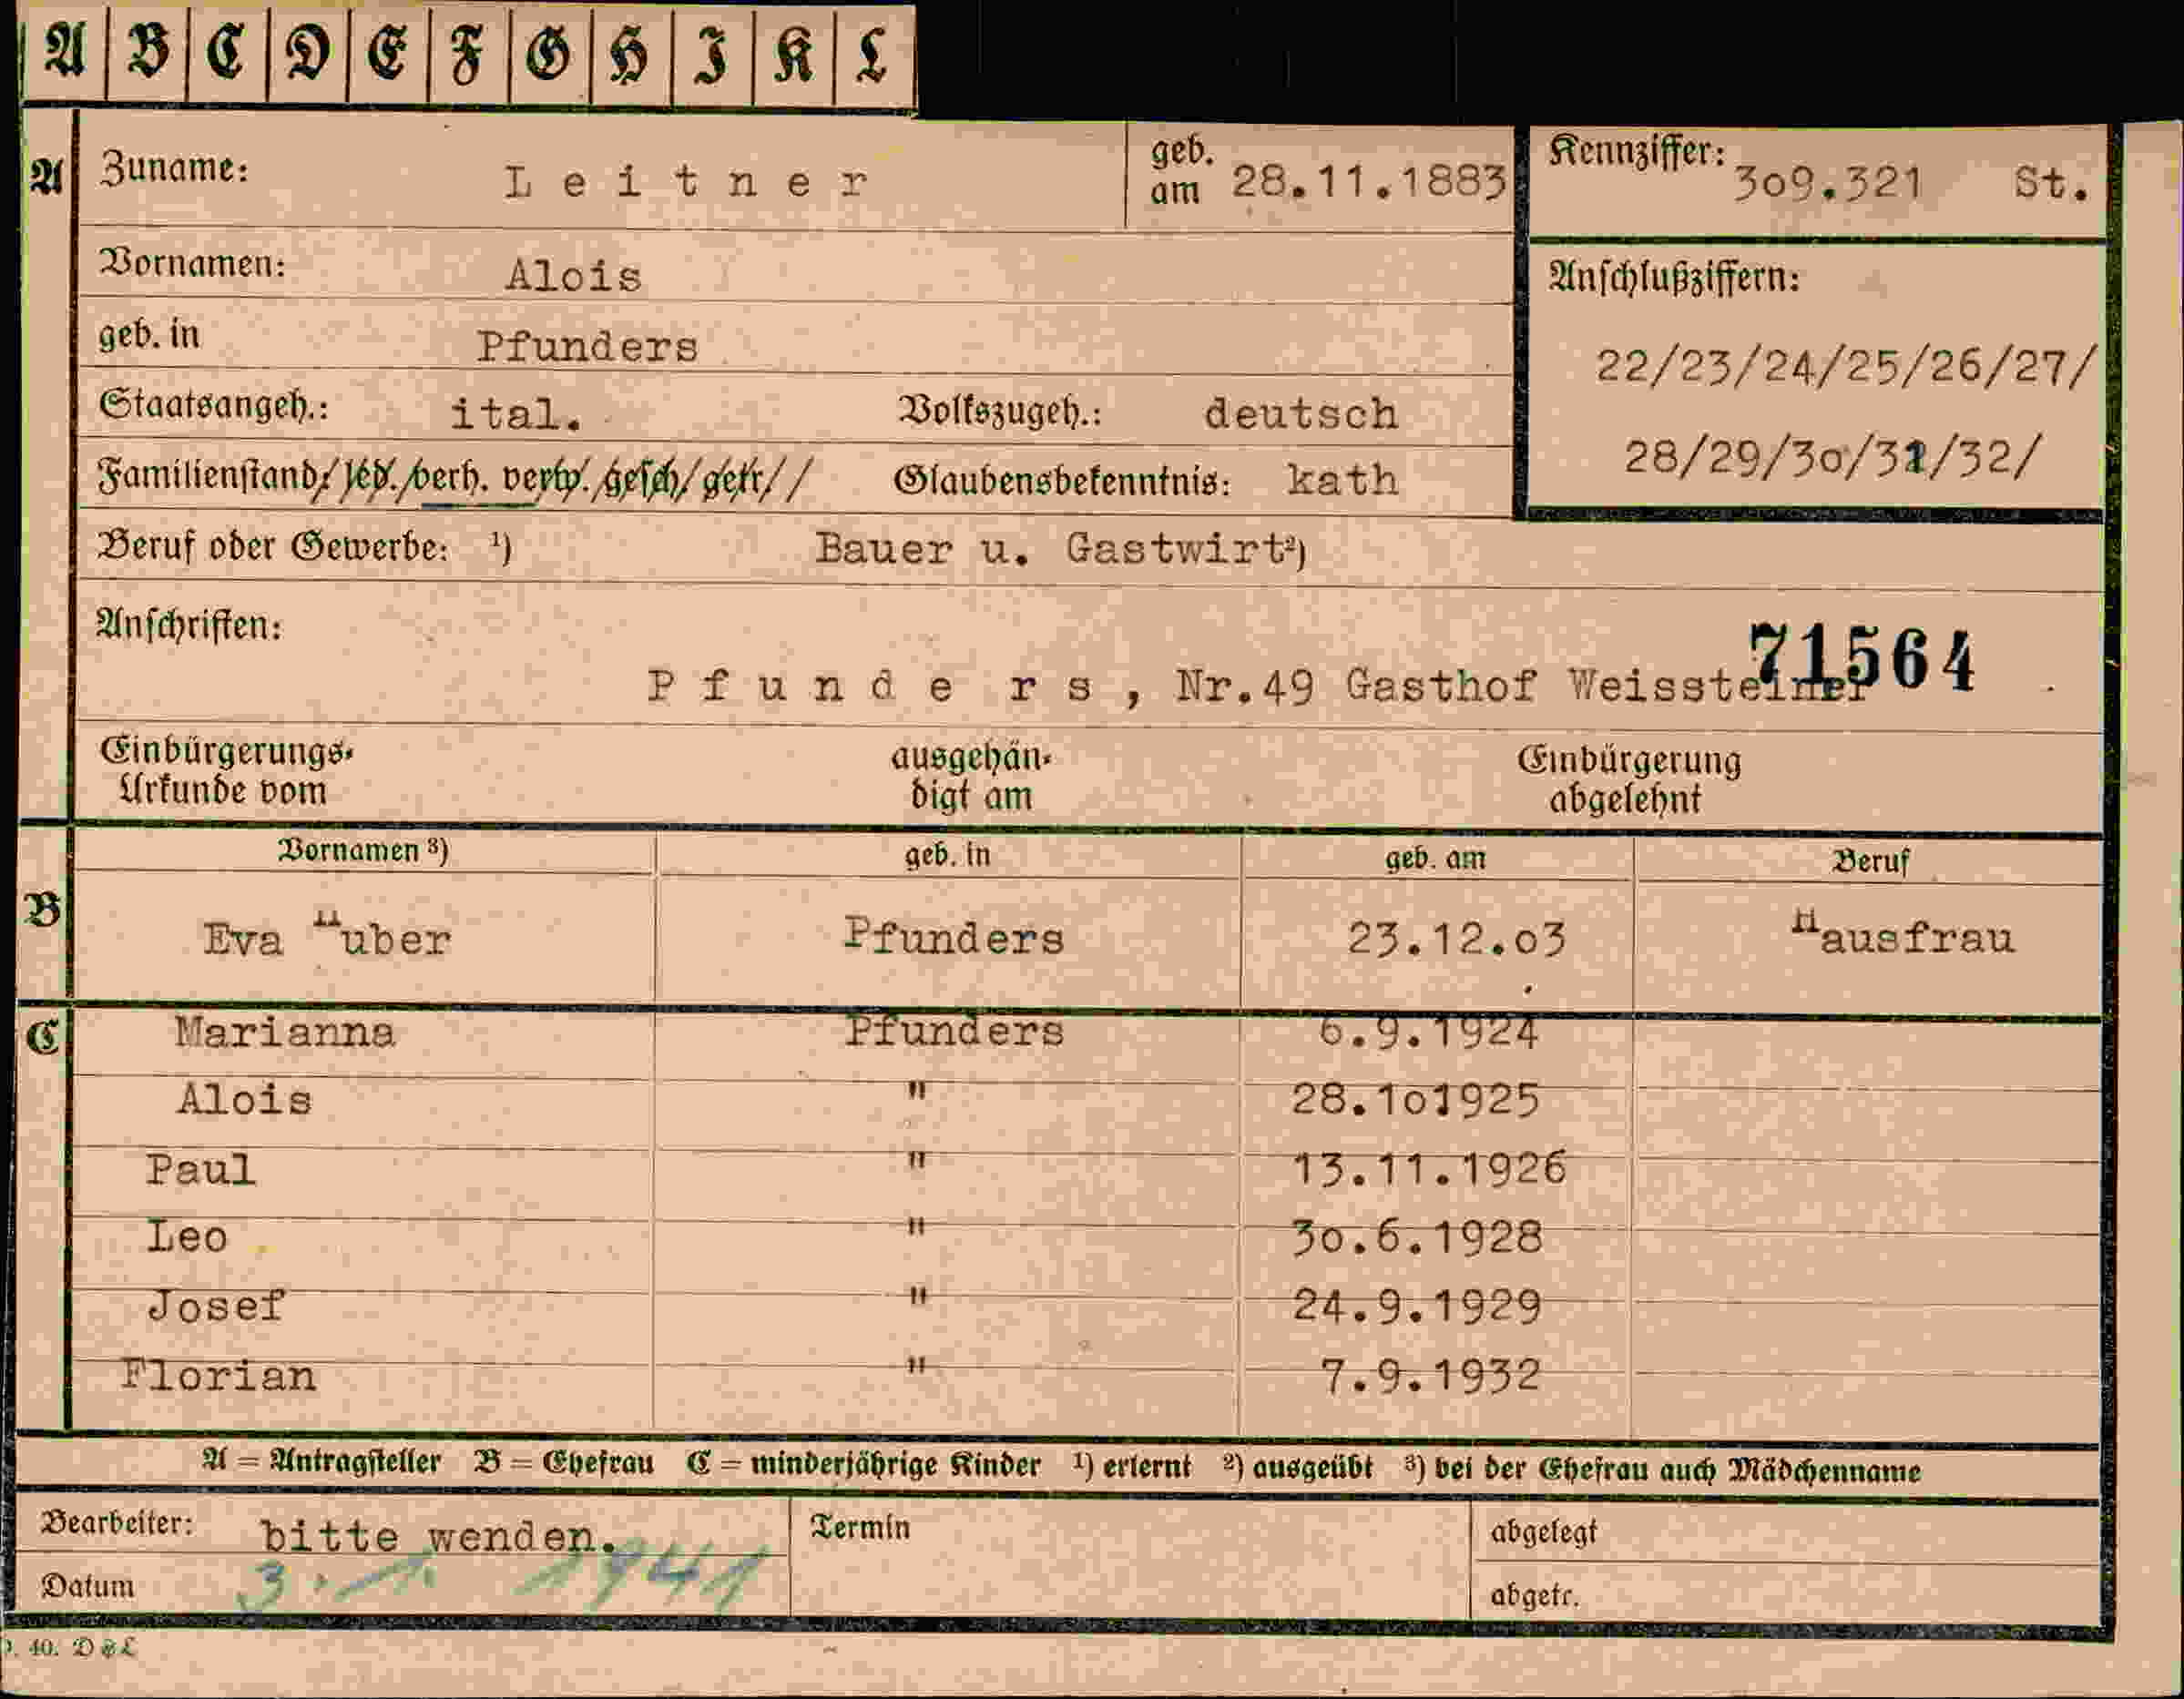 A B C D E F G H I K L
A Zuname: Leitner geb. am 28.11.1883 Kennziffer: 309.321 St.
Vornamen: Alois Anschlußziffern:
geb. in Pfunders 22/23/24/25/26/27/
Staatsangeh.: ital. Volkszugeh.: deutsch
Familienstand: led. verh. verw. gesch. getr. Glaubensbekenntnis: kath 28/29/30/31/32/
Beruf oder Gewerbe: ¹) Bauer u. Gastwirt ²)
Anschriften: 71564
Pfunders, Nr.49 Gasthof Weissteiner
Einbürgerungs- ausgehän- Einbürgerung
Urkunde vom digt am abgelehnt
Vornamen ³) geb. in geb. am Beruf
B Eva Huber Pfunders 23.12.03 Hausfrau
C Marianna Pfunders 6.9.1924
Alois " 28.101925
Paul " 13.11.1926
Leo " 30.6.1928
Josef " 24.9.1929
Florian " 7.9.1932
A = Antragsteller B = Ehefrau C = minderjährige Kinder ¹) erlernt ²) ausgeübt ³) bei der Ehefrau auch Mädchenname
Bearbeiter: bitte wenden. Termin abgelegt
Datum 3. 1. 1941 abgetr.
40. D & L